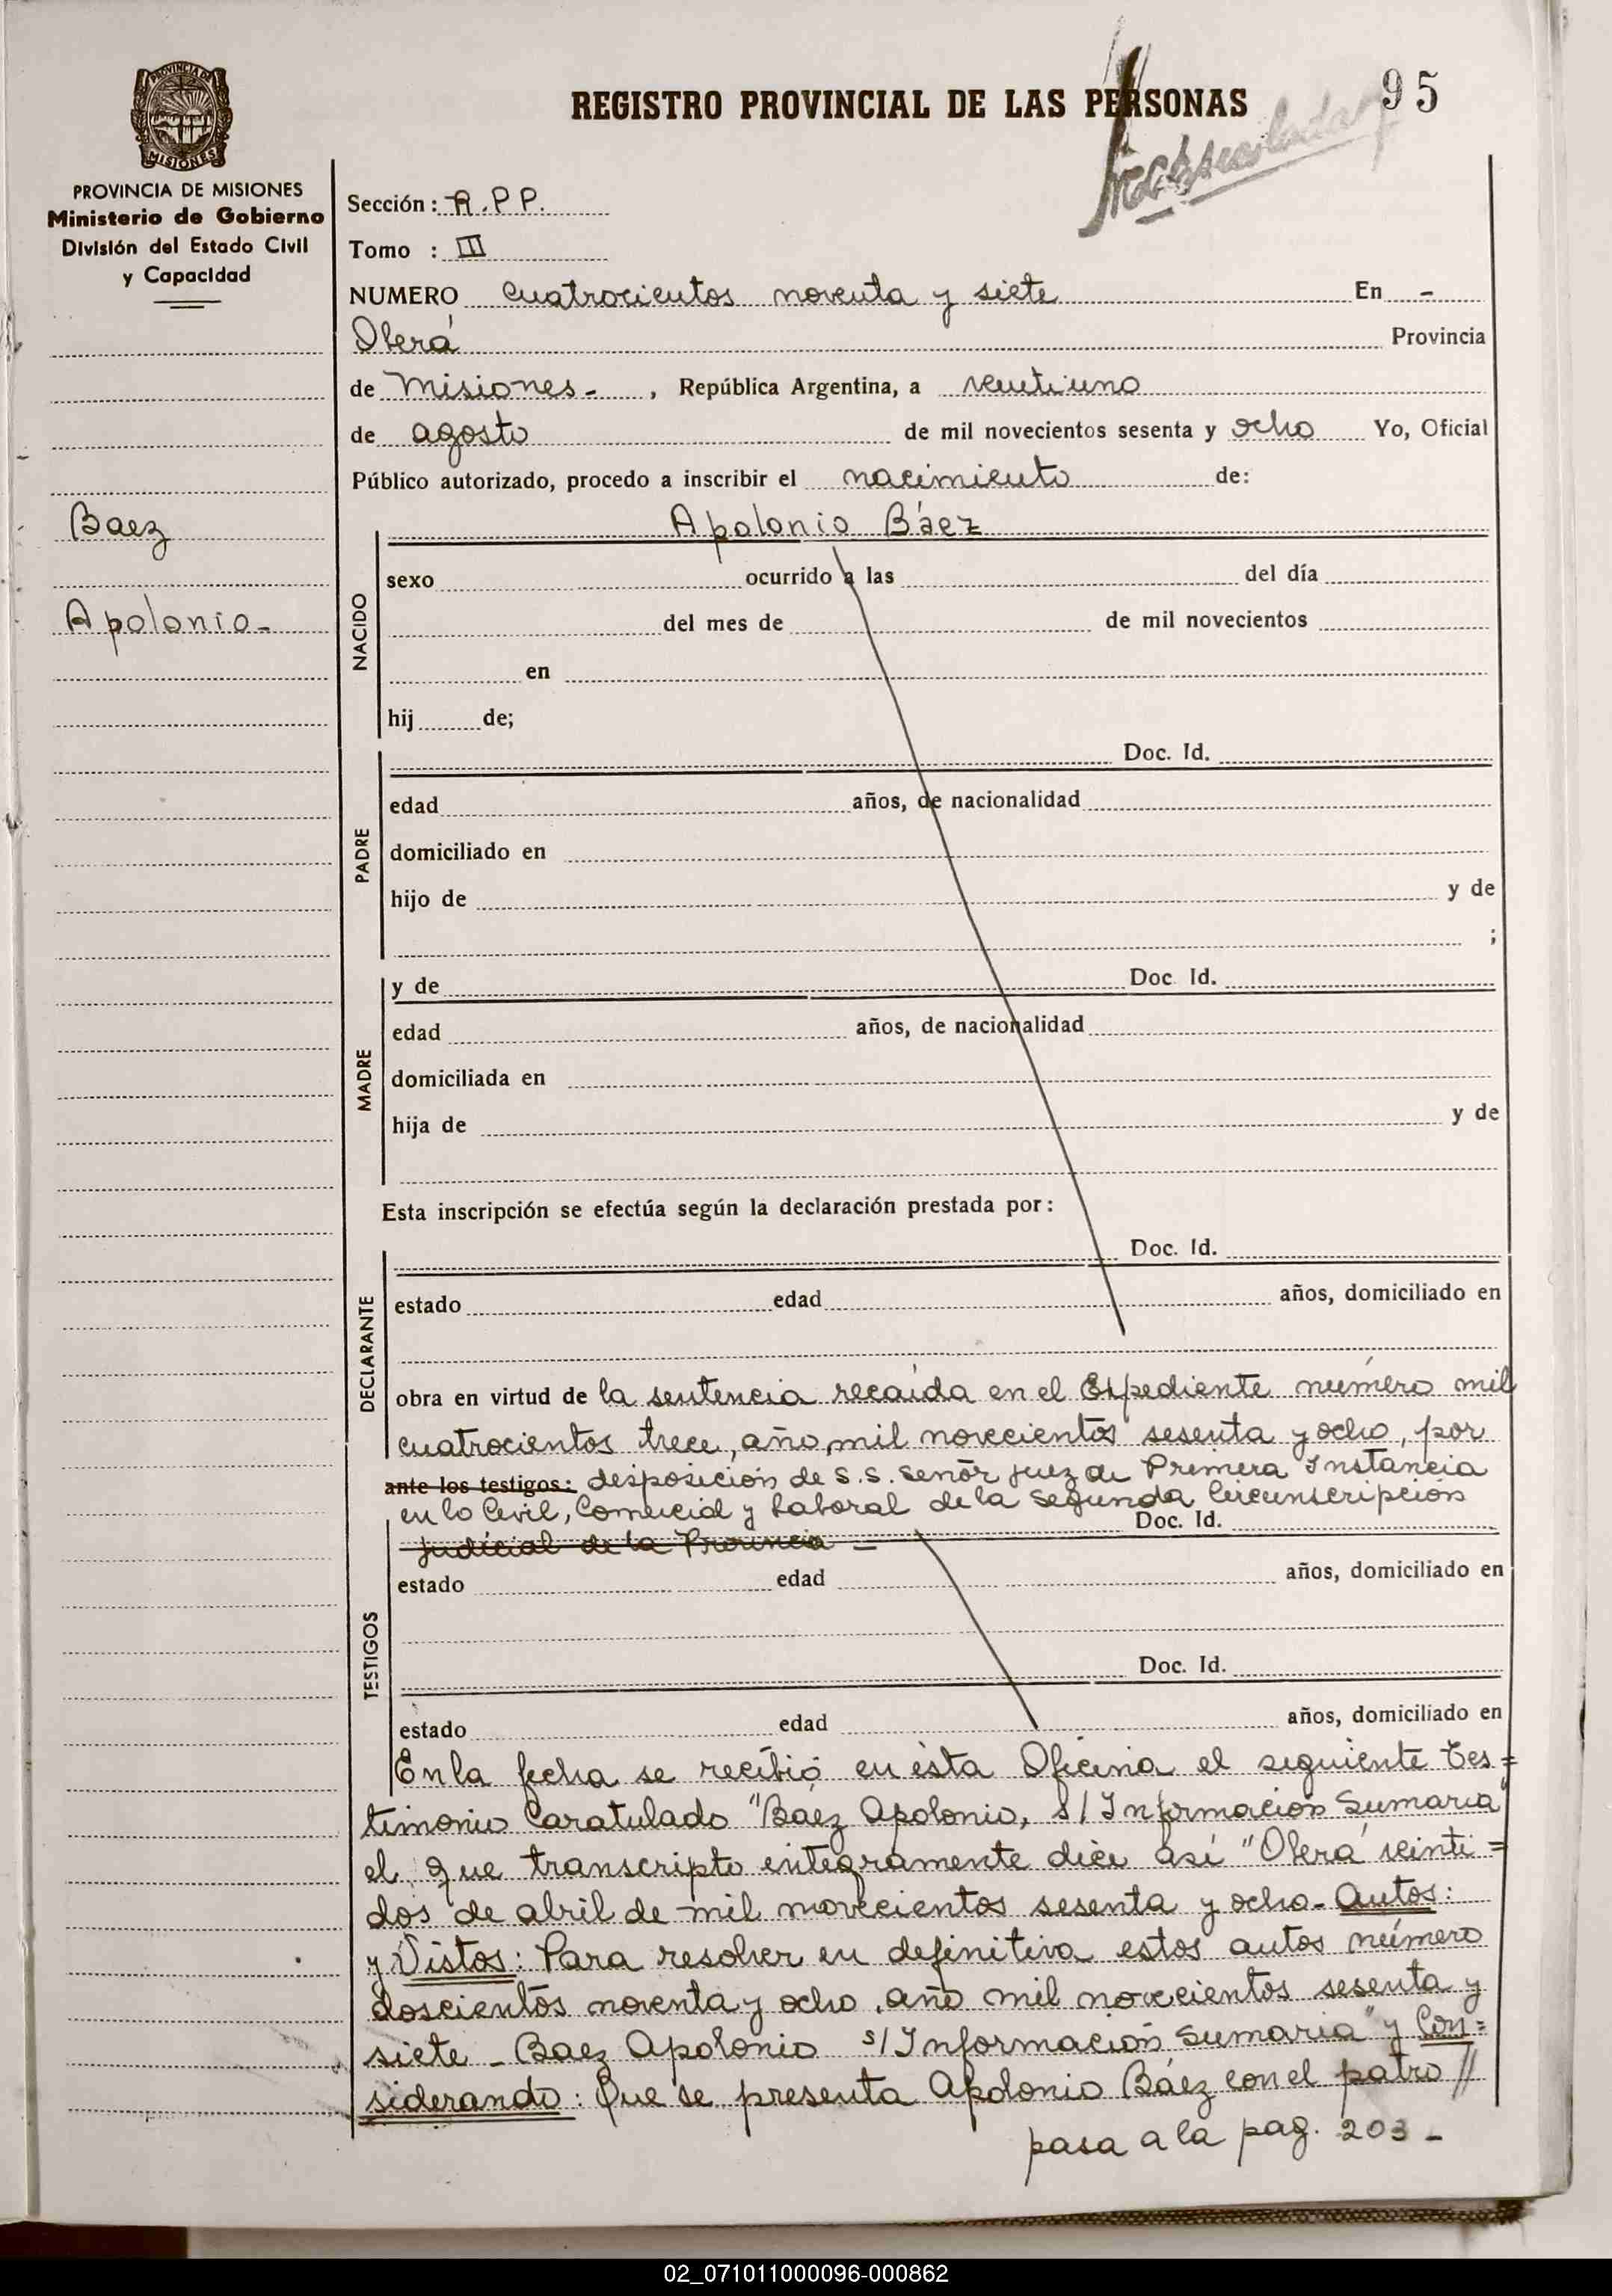 REGISTRO PROVINCIAL DE LAS PERSONAS
95
PROVINCIA DE
MISIONES
PROVINCIA DE MISIONES
Ministerio de Gobierno
División del Estado Civil
y Capacidad
Baez
Apolonio-
Sección: R.P.P.
Tomo : III
NUMERO cuatrocientos noventa y siete En -
Oberá Provincia
de Misiones- , República Argentina, a veintiuno
de agosto de mil novecientos sesenta y ocho Yo, Oficial
Público autorizado, procedo a inscribir el nacimiento de:
Apolonio Báez
NACIDO
sexo ocurrido a las del día
del mes de de mil novecientos
en
hij de;
PADRE
Doc. Id.
edad años, de nacionalidad
domiciliado en
hijo de y de
;
MADRE
y de Doc. Id.
edad años, de nacionalidad
domiciliada en
hija de y de
Esta inscripción se efectúa según la declaración prestada por:
DECLARANTE
Doc. Id.
estado edad años, domiciliado en
obra en virtud de la sentencia recaída en el Expediente número mil
cuatrocientos trece, año mil novecientos sesenta y ocho, por
ante los testigos: desposición de S.S. Señor Juez de Primera Instancia
en lo Civil, Comercial y Laboral de la Segunda Circunscripción
Doc. Id.
Judicial de la Provincia -
TESTIGOS
estado edad años, domiciliado en
Doc. Id.
estado edad años, domiciliado en
En la fecha se recibió en ésta Oficina el siguiente Tes=
timonio Caratulado "Báez Apolonio, s/Información Sumaria"
el que transcripto integramente dice así "Oberá veinti=
dos de abril de mil novecientos sesenta y ocho- Autos:
y Vistos: Para resolver en definitiva estos autos número
doscientos noventa y ocho, año mil novecientos sesenta y
siete - Baez Apolonio s/Información Sumaria" y Con=
siderando: Que se presenta Apolonio Báez con el patro//
pasa a la pag. 203-
02_071011000096-000862